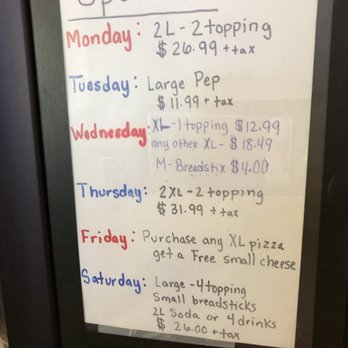 Monday: 2L - 2 topping
$26.99 + tax
Tuesday: Large Pep
$11.99 + tax
Wednesday: XL - 1 topping $12.99
any other XL - $18.49
M - Breadstix $4.00
Thursday: 2XL - 2 topping
$31.99 + tax
Friday: Purchase any XL pizza
get a Free small cheese
Saturday: Large - 4 topping
Small breadsticks
2L Soda or 4 drinks
$26.00 + tax